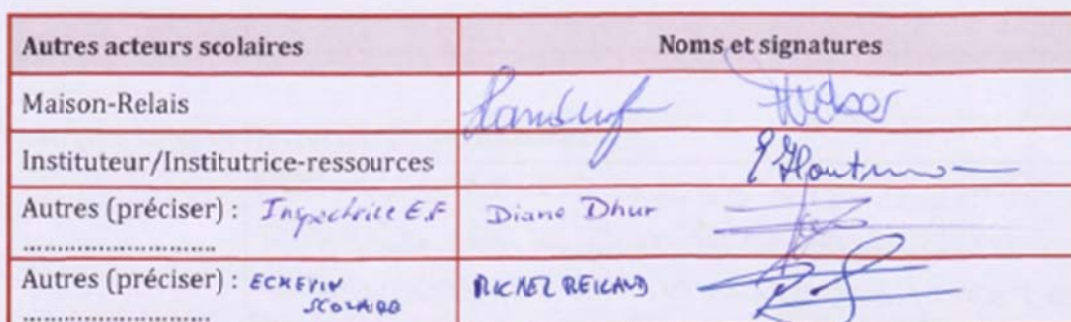 Autres acteurs scolaires Noms et signatures
Maison-Relais
Instituteur/Institutrice-ressources
Autres (préciser) : Inspectrice E.F Diane Dhur
..............................
Autres (préciser) : ECHEVIN
SCOLAIRE
..............................